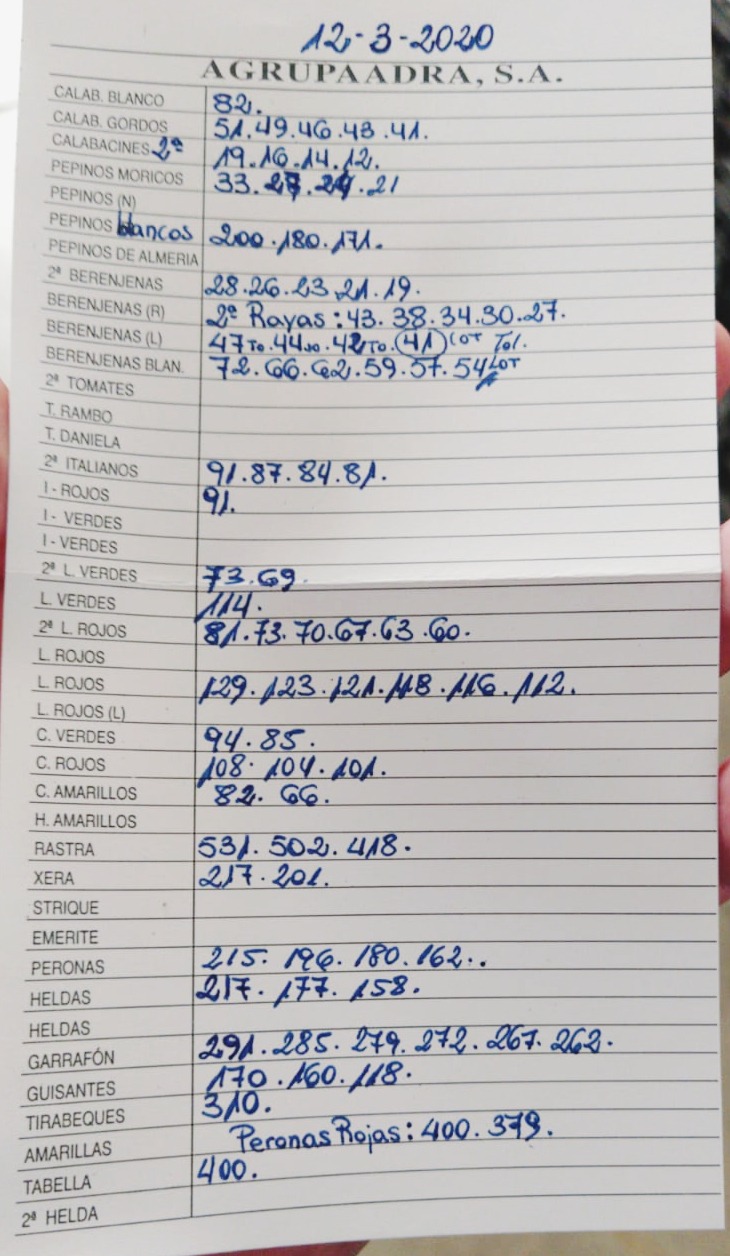 12-3-2020
AGRUPAADRA, S.A.
CALAB. BLANCO 82.
CALAB. GORDOS 51.49.46.43.41.
CALABACINES 2ª 19.16.14.12.
PEPINOS MORICOS 33.27.24.21
PEPINOS (N)
PEPINOS blancos 200.180.171.
PEPINOS DE ALMERIA
2ª BERENJENAS 28.26.23.21.19.
BERENJENAS (R) 2ª Rayas: 43.38.34.30.27.
BERENJENAS (L) 47 To. 44 . 42 To. (41) LOT Tol.
BERENJENAS BLAN. 72.66.62.59.57.54 LOT
2ª TOMATES
T. RAMBO
T. DANIELA
2ª ITALIANOS 91.87.84.81.
I - ROJOS 91.
I - VERDES
I - VERDES
2ª L. VERDES 73.69.
L. VERDES 114.
2ª L. ROJOS 81.73.70.67.63.60.
L. ROJOS
L. ROJOS 129.123.121.118.116.112.
L. ROJOS (L)
C. VERDES 94.85.
C. ROJOS 108.104.101.
C. AMARILLOS 82.66.
H. AMARILLOS
RASTRA 531.502.418.
XERA 217.201.
STRIQUE
EMERITE
PERONAS 215.196.180.162..
HELDAS 217.177.158.
HELDAS
GARRAFÓN 291.285.279.272.267.262.
GUISANTES 170.160.118.
TIRABEQUES 310.
AMARILLAS Peronas Rojas: 400.379.
TABELLA 400.
2ª HELDA